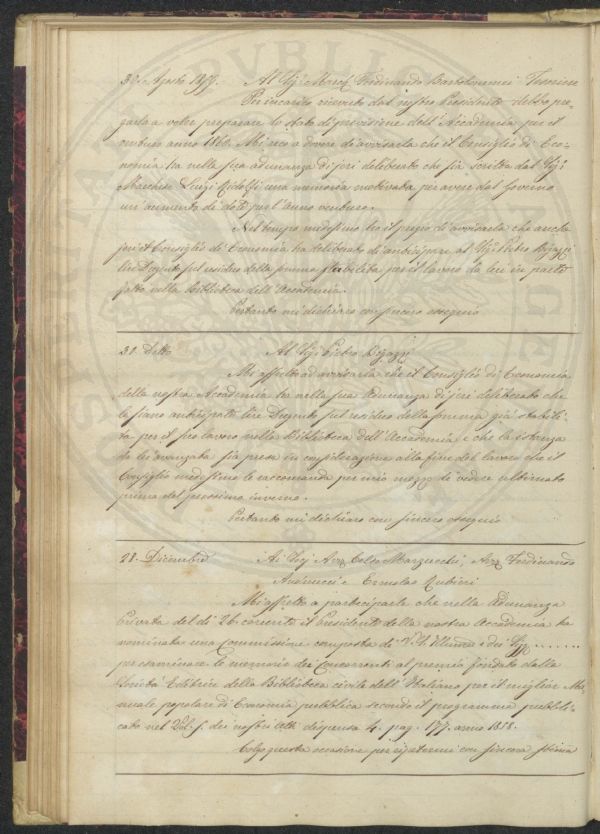 Agosto 1859. Al Sig. March. Ferdinando Bartolommei Tesoriere
Per incarico ricevuto dal nostro Presidente debbo pre-
garla a voler preparare lo stato di previsione dell'Accademia per il
venturo anno 1860. Mi reco a dovere di avvisarla che il Consiglio di Eco-
nomia ha nella sua adunanza di jeri deliberato che sia scritta dal Sig.
Marchese Luigi Ridolfi una memoria motivata per avere dal Governo
un aumento di dote per l'anno venturo.
Nel tempo medesimo ho il pregio di avvisarla che anche
jeri il Consiglio di Economia ha deliberato di anticipare al Sig. Pietro
lire Dugento sul residuo della somma stabilita per il lavoro da lui in parte
fatto nella Biblioteca dell'Accademia.
Pertanto mi dichiaro con sincero ossequio
31. Detto Al Sig. Pietro
Mi affretto ad avvisarla che il Consiglio di Economia
della nostra Accademia ha nella sua Adunanza di jeri deliberato che
le siano anticipate lire Dugento sul residuo della somma già stabili-
ta per il suo lavoro nella Biblioteca dell'Accademia e che la istanza
da lei avanzata sia presa in considerazione alla fine del lavoro che il
Consiglio medesimo le raccomanda per mio mezzo di vedere ultimato
prima del prossimo inverno.
Pertanto mi dichiaro con sincero ossequio
28. Dicembre Ai Sigg. Avv. Celso Marzucchi, Avv. Ferdinando
Andreucci e Ermolao Rubieri
Mi affretto a parteciparle che nella Adunanza
Privata del dì 26 corrente il Presidente della nostra Accademia ha
nominata una Commissione composta di V. S. Illma e dei Sigg. .......
per esaminare le memorie dei Concorrenti al premio fondato dalla
Società Editrice della Biblioteca civile dell'Italiano per il miglior Ma-
nuale popolare di Economia pubblica secondo il programma pubbli-
cato nel Vol. 5. dei nostri Atti dispensa 4. pag. 177. anno 1858.
Colgo questa occasione per ripetermi con sincera stima